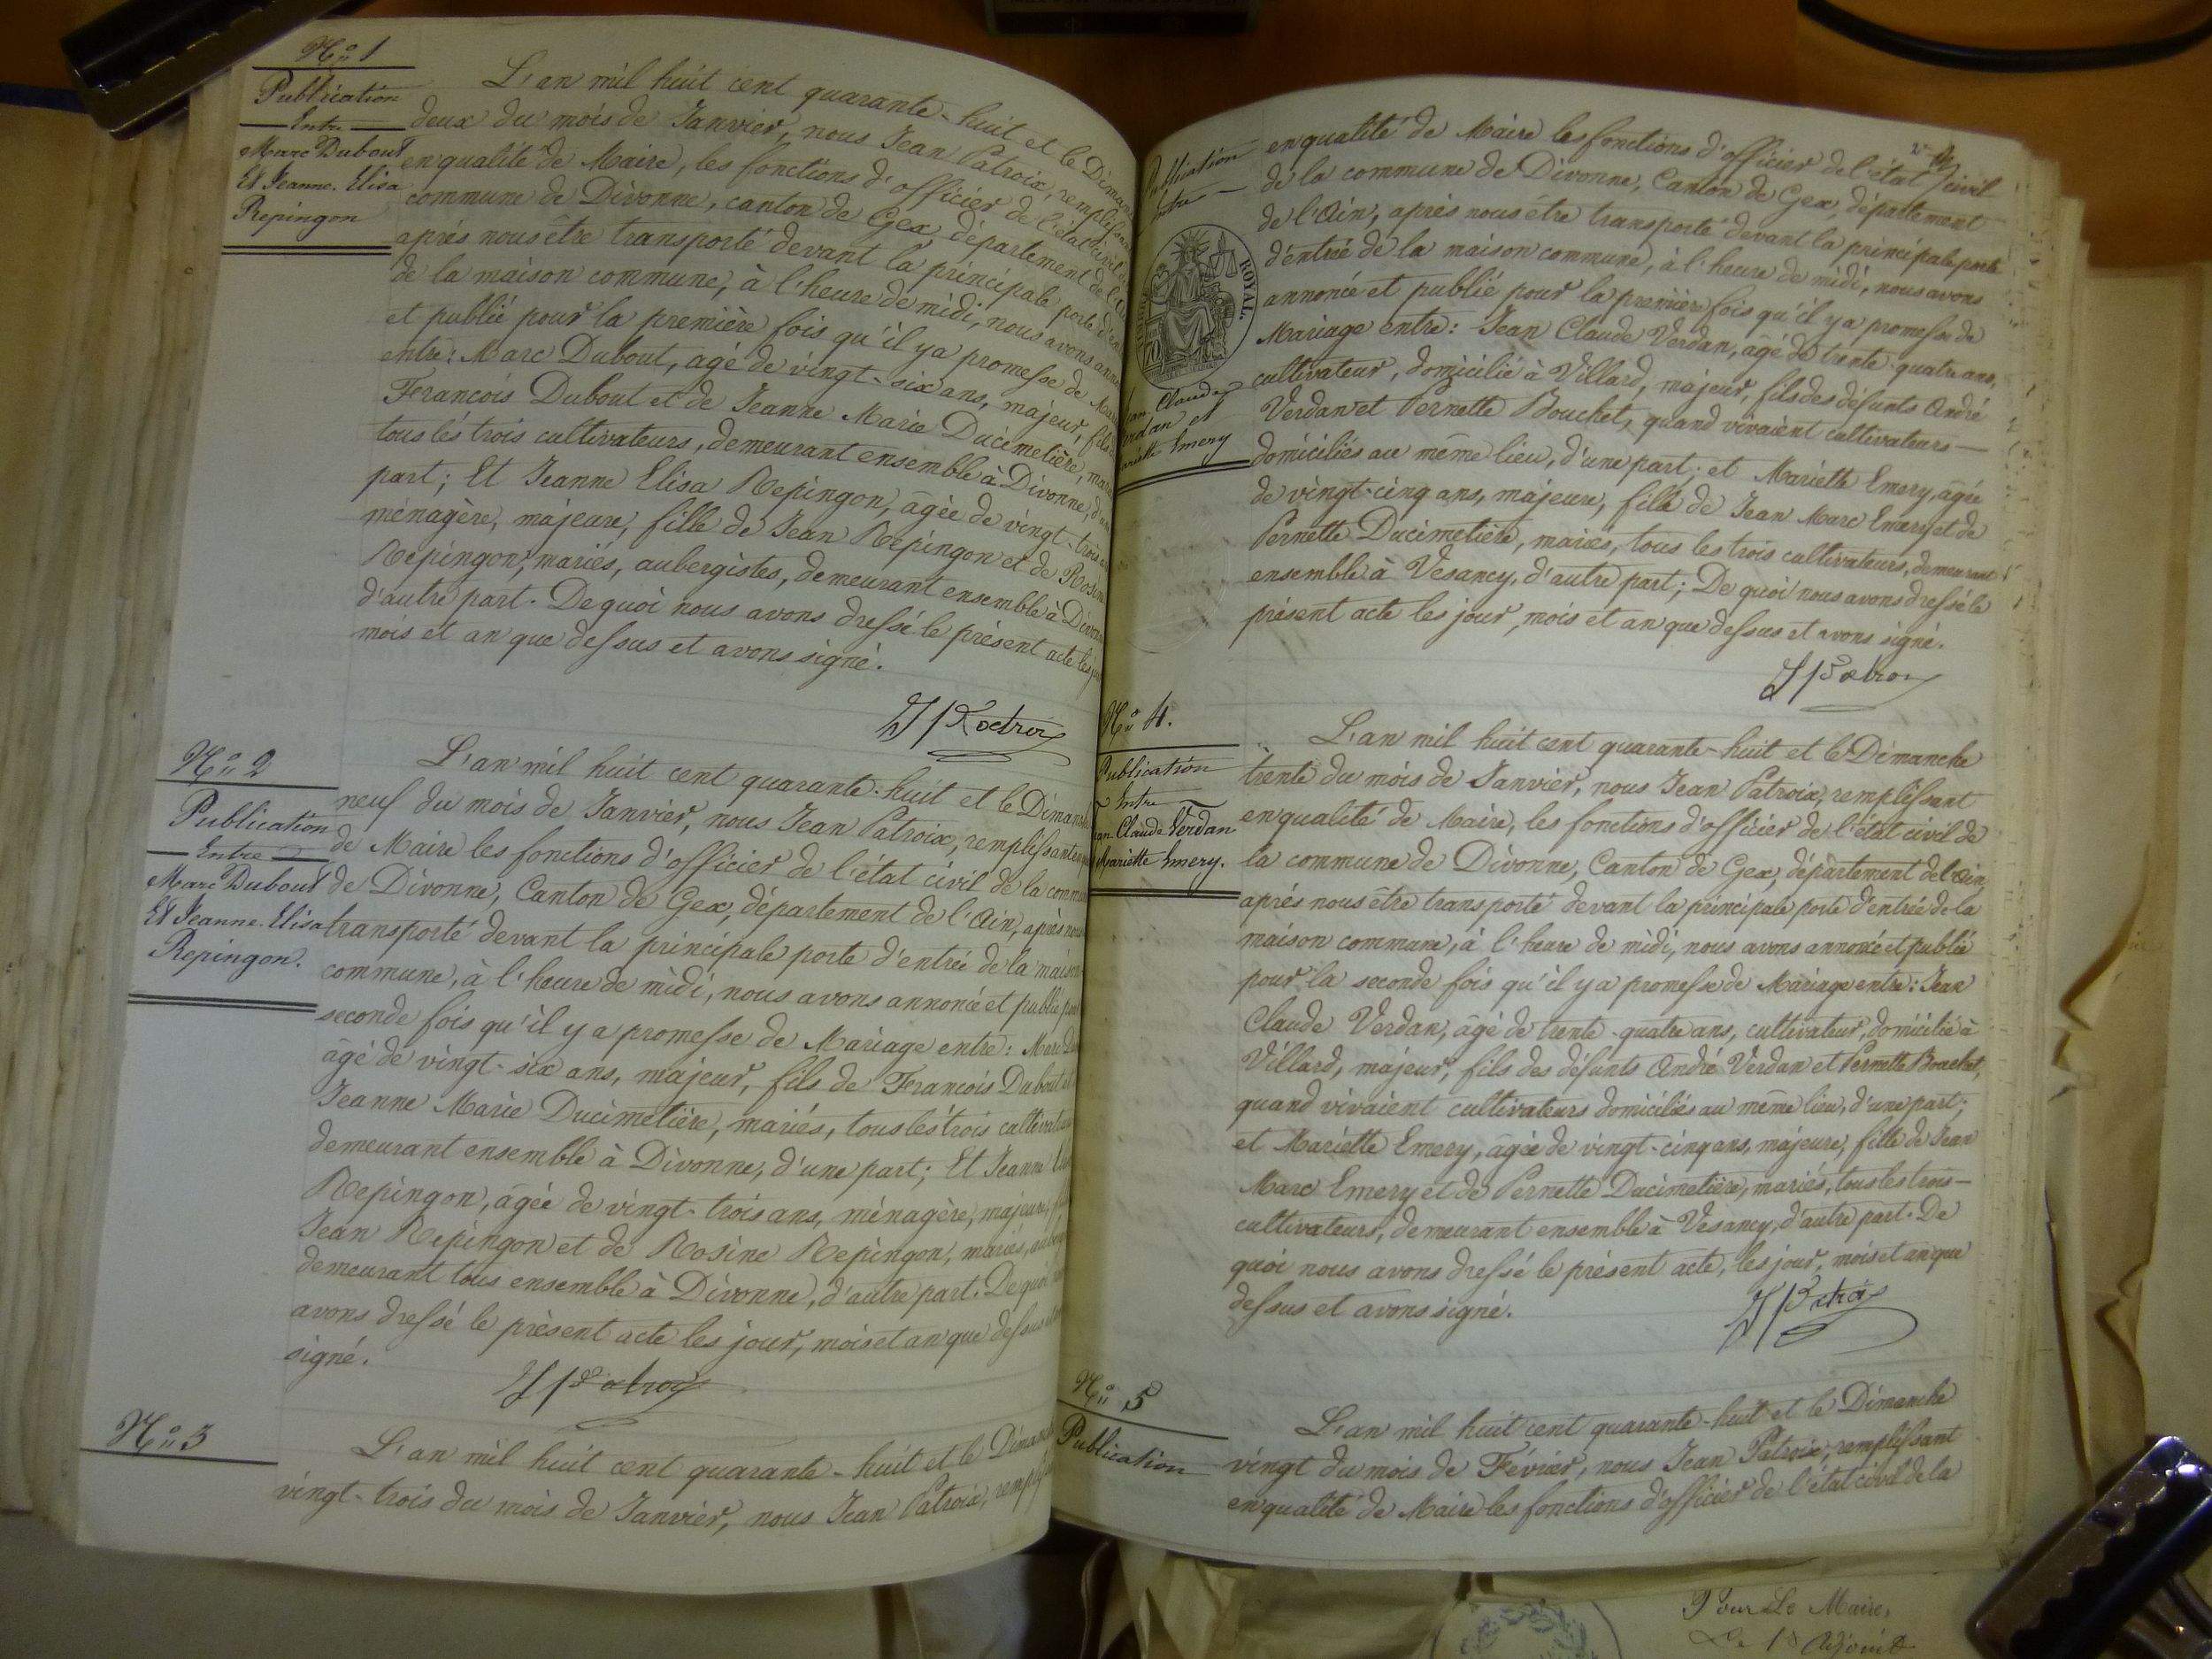 Nº 1
Publication
Entre
Marc Dubout
Et Jeanne. Elisa
Repingon
L'an mil huit cent quarante-huit et le Diman
deux du mois de Janvier, nous Jean Patroix, remplissant
en qualité de Maire, les fonctions d'officier de l'état civil
commune de Divonne, canton de Gex, département de l'Ain
après nous être transporté devant la principale porte d'en
de la maison commune, à l'heure de midi, nous avons anno
et publié pour la première fois qu'il y a promesse de Mar
entre: Marc Dubout, agé de vingt-six ans, majeur, fils
Francois Dubout et de Jeanne Marie Ducimetière, mari
tous lés trois cultivateurs, demeurant ensemble à Divonne, d'une
part; Et Jeanne Elisa Repingon, agée de vingt-trois
ménagère, majeure, fille de Jean Repingon et de Rosine
Repingon, mariés, aubergistes, demeurant ensemble à Divonne
d'autre part. De quoi nous avons dressé le présent acte les jour
mois et an que dessus et avons signé.
J Patroix
Nº 2
Publication
Entre
Marc Dubout
Et Jeanne. Elisa
Repingon.
L'an mil huit cent quarante-huit et le Dimanche
neuf du mois de Janvier, nous Jean Patroix, remplissant en
de Maire les fonctions d'officier de l'état civil de la commune
de Divonne, Canton de Gex, département de l'Ain, après nous
transporté devant la principale porte d'entrée de la maison
commune, à l'heure de midi, nous avons annoncé et publié pour
seconde fois qu'il y a promesse de Mariage entre: Marc
âgé de vingt-six ans, majeur, fils de Francois Dubout et
Jeanne Marie Ducimetière, mariés, tous lés trois cultivat
demeurant ensemble à Divonne, d'une part; Et Jeanne Elisa
Repingon, âgée de vingt-trois ans, ménagère, majeure, fille
Jean Repingon et de Rosine Repingon, mariés,
demeurant tous ensemble à Divonne, d'autre part. De quoi nous
avons dressé le présent acte les jour, mois et an que dessus et
signé.
J Patroix
Nº 3
L'an mil huit cent quarante-huit et le Dimanche
vingt-trois du mois de Janvier, nous Jean Patroix, rempliss
2e
Publication
Entre
ROYAL.
Jean Claude
Verdan et
Mariette Emery
en qualité de Maire les fonctions d'officier de l'état civil
de la commune de Divonne, Canton de Gex, département
de l'Ain, après nous être transporté devant la principale porte
d'entrée de la maison commune, à l'heure de midi, nous avons
annoncé et publié pour la première fois qu'il y a promesse de
Mariage entre: Jean Claude Verdan, âgé de trente quatre ans,
cultivateur, domicilié à Villard, majeur, fils des défunts André
Verdan et Pernette Bouchet, quand vivaient cultivateurs
domiciliés au même lieu, d'une part; et Mariette Emery, âgée
de vingt-cinq ans, majeure, fille de Jean Marc Emery et de
Pernette Ducimetière, mariés, tous les trois cultivateurs, demeurant
ensemble à Vesancy, d'autre part; De quoi nous avons dressé le
présent acte les jour, mois et an que dessus et avons signé.
J Patroix
Nº 4.
Publication
Entre
Jean Claude Verdan
Mariette Emery.
L'an mil huit cent quarante-huit et le Dimanche
trente du mois de Janvier, nous Jean Patroix, remplissant
en qualité de Maire, les fonctions d'officier de l'état civil de
la commune de Divonne, Canton de Gex, département de l'Ain,
après nous être transporté devant la principale porte d'entrée de la
maison commune, à l'heure de midi, nous avons annoncé et publié
pour la seconde fois qu'il y a promesse de Mariage entre: Jean
Claude Verdan, âgé de trente-quatre ans, cultivateur, domicilié à
Villard, majeur, fils des défunts André Verdan et Pernette Bouchet,
quand vivaient cultivateurs domiciliés au même lieu, d'une part;
et Mariette Emery, âgée de vingt-cinq ans, majeure, fille de Jean
Marc Emery et de Pernette Ducimetière, mariés, tous les trois
cultivateurs, demeurant ensemble à Vesancy, d'autre part. De
quoi nous avons dressé le présent acte, les jour, mois et an que
dessus et avons signé.
J Patroix
Nº 5
Publication
L'an mil huit cent quarante-huit et le Dimanche
vingt du mois de Févier, nous Jean Patroix, remplissant
en qualité de Maire les fonctions d'officier de l'état civil de la
Pour Le Maire,
Le 1er Adjoint